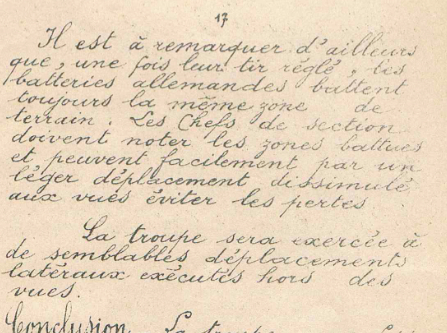 17
Il est à remarquer d'ailleurs
que, une fois leur tir réglé, les
batteries allemandes battent
toujours la même zone de
terrain. Les Chefs de section
doivent noter les zones battues
et peuvent facilement par un
léger déplacement dissimulé
aux vues éviter les pertes
La troupe sera exercée à
de semblables déplacements
latéraux exécutés hors des
vues.
Conclusion. La troupe